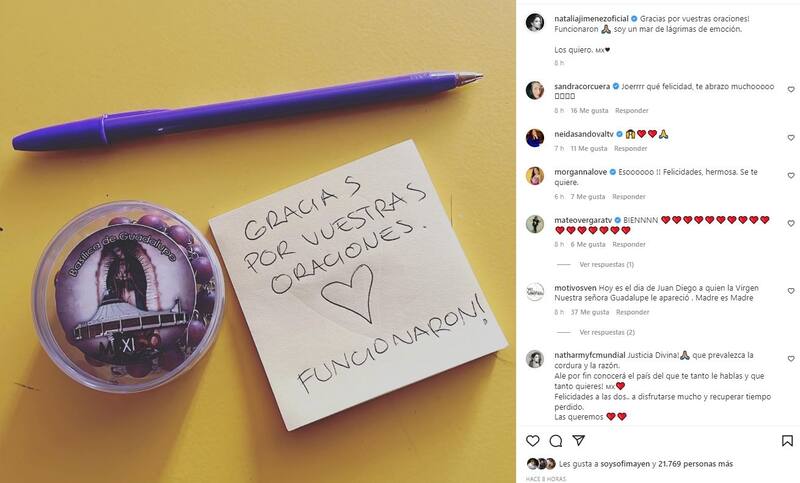 Basílica de Guadalupe
GRACIAS
POR VUESTRAS
ORACIONES.
FUNCIONARON!
nataliajimenezoficial Gracias por vuestras oraciones!
Funcionaron 🙏 soy un mar de lágrimas de emoción.
Los quiero. MX♥
8 h
sandracorcuera Joerrrr qué felicidad, te abrazo muchooooo
8 h 16 Me gusta Responder
neidasandovaltv 🙌❤️❤️🙏
7 h 11 Me gusta Responder
morgannalove Esoooooo !! Felicidades, hermosa. Se te
quiere.
6 h 7 Me gusta Responder
mateovergaratv BIENNNN ❤️❤️❤️❤️❤️❤️❤️❤️❤️❤️
❤️❤️❤️❤️❤️❤️❤️
8 h 6 Me gusta Responder
Ver respuestas (1)
motivosven Hoy es el dia de Juan Diego a quien la Virgen
Nuestra señora Guadalupe le apareció . Madre es Madre
8 h 37 Me gusta Responder
Ver respuestas (2)
natharmyfcmundial Justicia Divina!🙏 que prevalezca la
cordura y la razón.
Ale por fin conocerá el país del que te tanto le hablas y que
tanto quieres! MX❤️
Felicidades a las dos.. a disfrutarse mucho y recuperar tiempo
perdido.
Las queremos ❤️❤️
Les gusta a soysofimayen y 21.769 personas más
HACE 8 HORAS